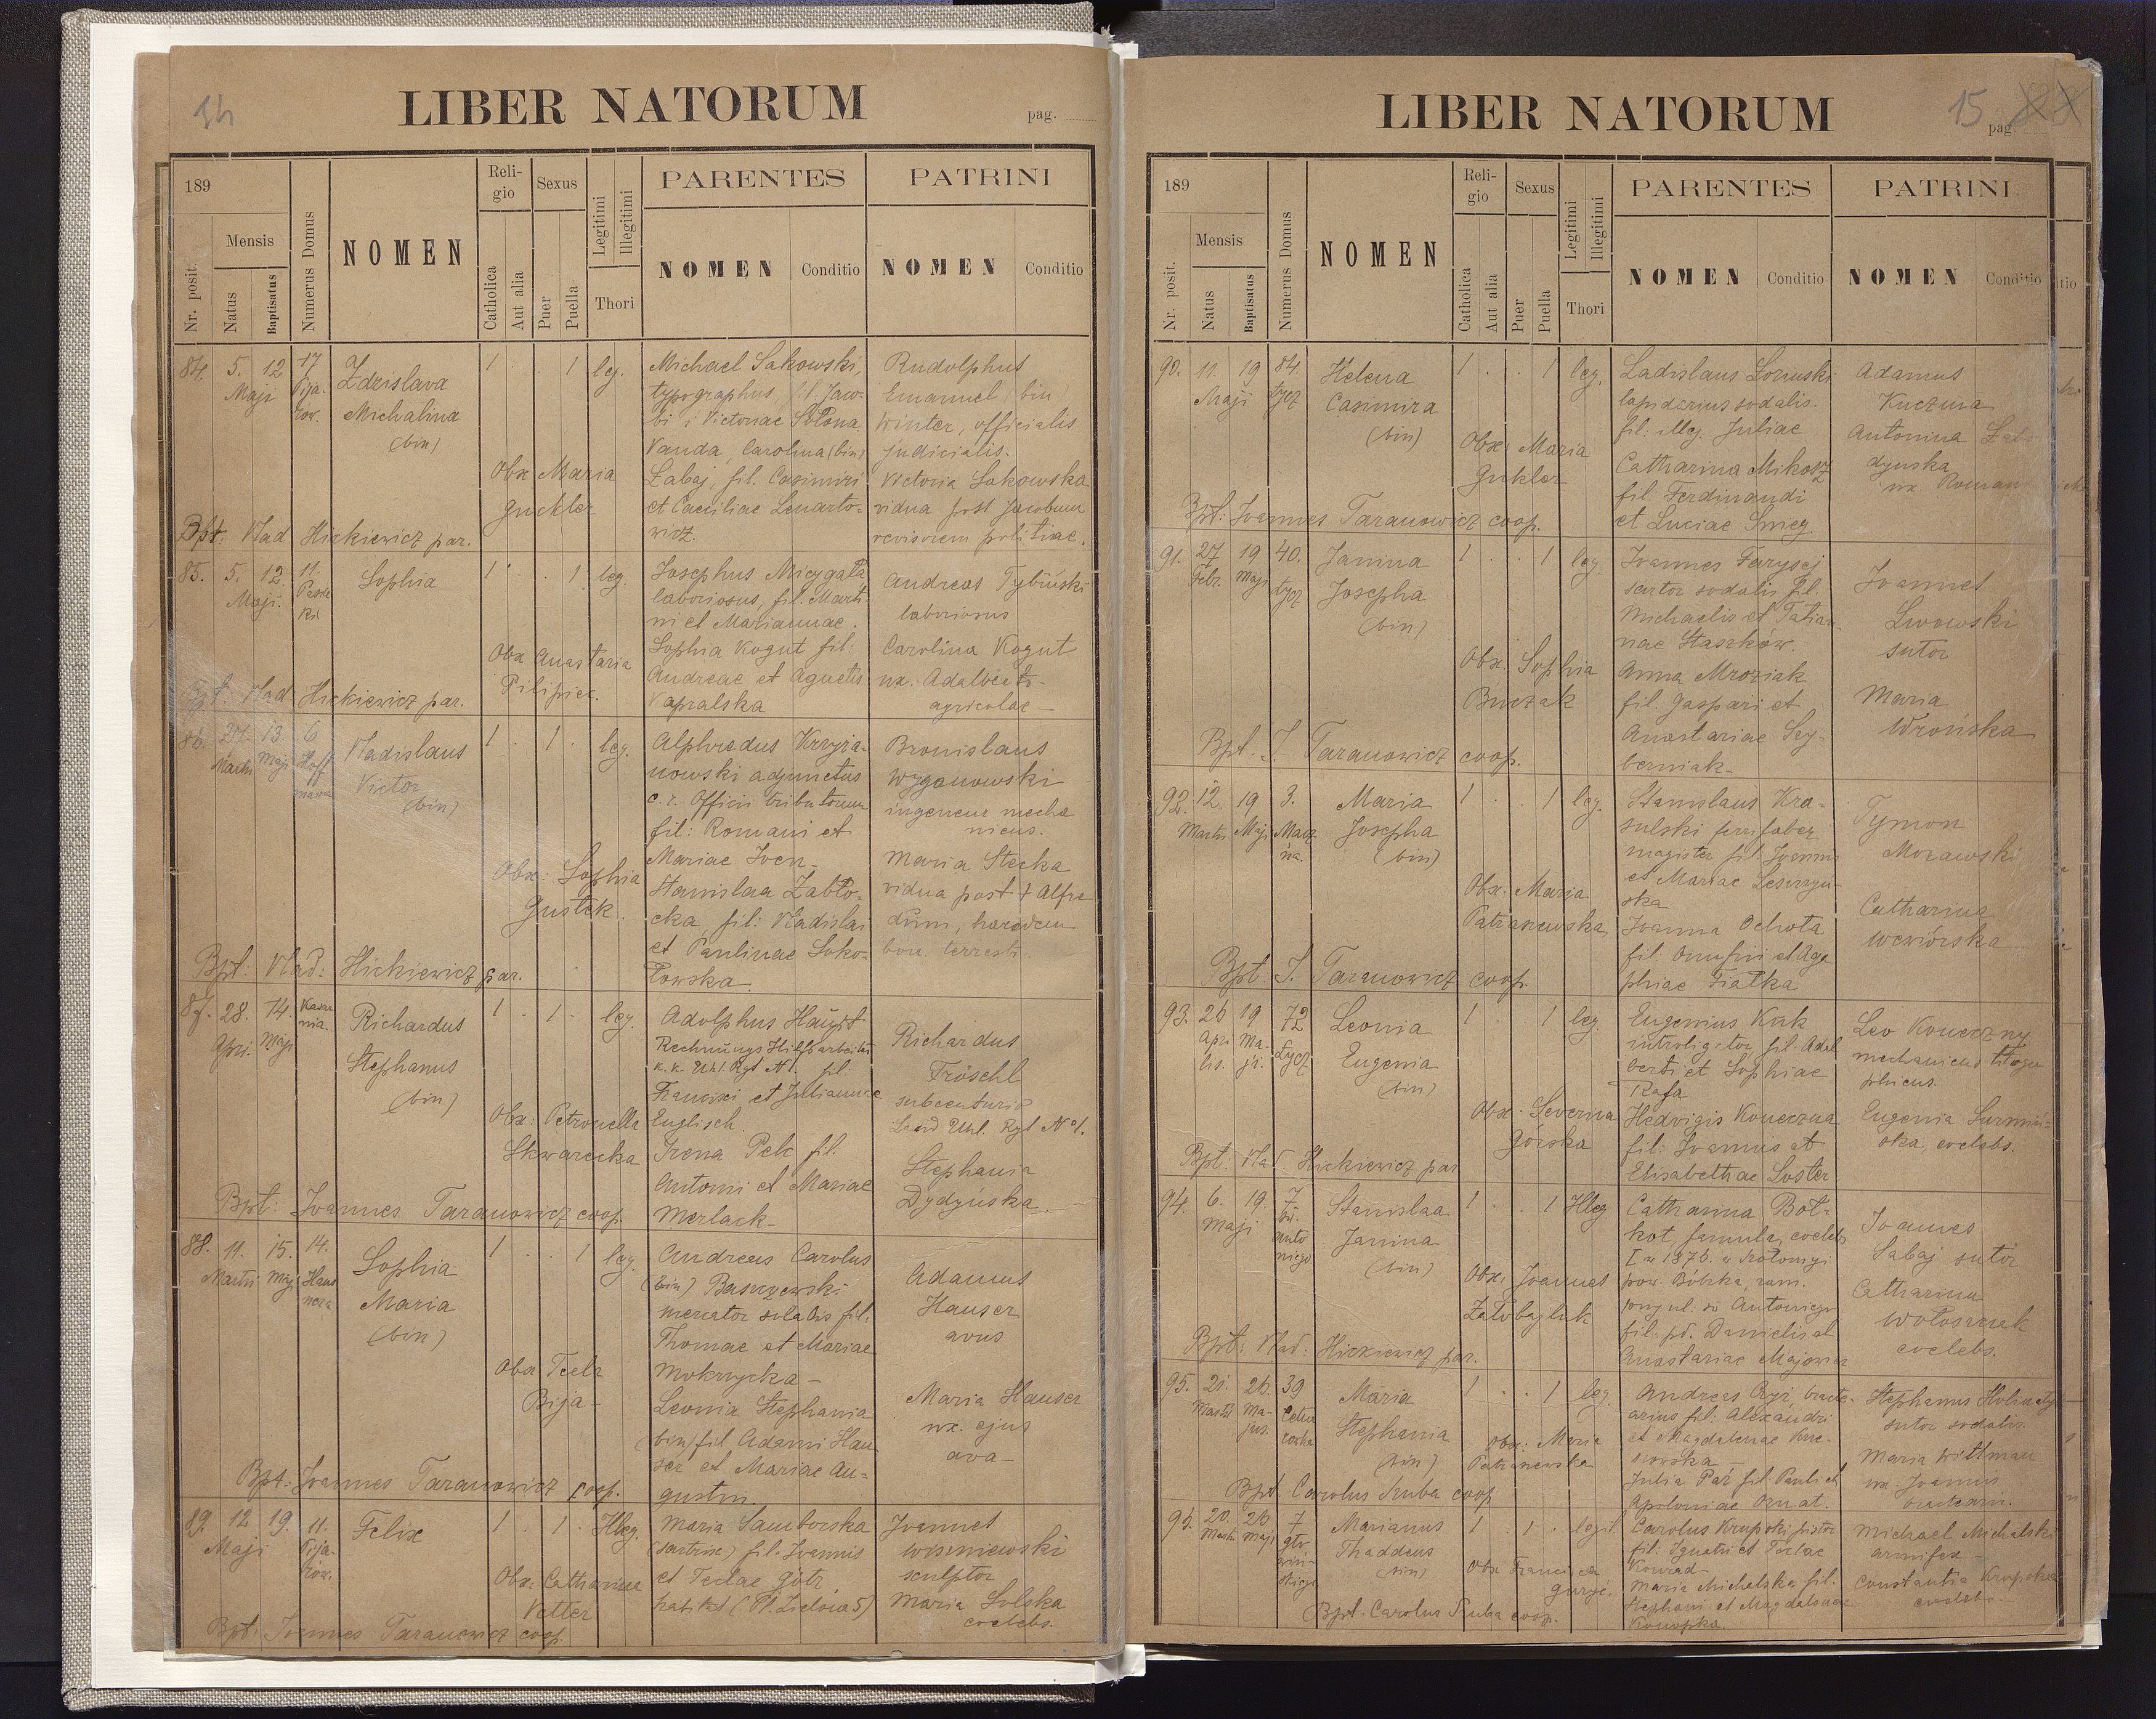 14
LIBER NATORUM
pag.
189
Mensis
Nr. posit
Natus
Baptisatus
Numerus Domus
NOMEN
Reli-
gio
Catholica
Aut alia
Sexus
Puer
Puella
Legitimi
Illegitimi
Thori
PARENTES
NOMEN Conditio
PATRINI
NOMEN Conditio
84. 5. 12 17
Maji
Zdzislava
Michalina
(bin)
1 1 leg.
Obx Maria
Guckler
Michael Sakowski,
typographus,
Vanda, Carolina (bin)
Zabaj, fil. Casimiri
et Caeciliae Lenarto-
wicz.
Rudolphus
Emanuel (bin)
Winter, officialis
judicialis.
Victoria Sakowska
vidua post Jacobum
revisorem politiae.
Bpt. Vlad Hickiewicz par.
85. 5. 12. 11.
Maji.
Sophia
1 1 leg.
Obx Anastasia
Pilipiec.
Josephus Micygała
laboriosus, fil. Marti-
ni et Mariannae.
Sophia Kogut fil:
Andreae et Agnetis
Kapralska
Andreas Tybiński
laboriosus
Carolina Kogut
ux. Adalberti-
agricolae-
Bpt. Vlad Hickiewicz par.
86. 27. 13. 6
Martii Maji Hoff
mana
Vladislaus
Victor
(bin)
1 1 leg.
Obx: Sophia
Gustek.
Alphredus Krzyża-
nowski adjunctus
c. r. Officii tributorum
fil: Romani et
Mariae
Stanislaa Zabło-
cka, fil: Vladislai
et Paulinae Soko-
łowska.
Bronislaus
Wyganowski
ingeneur mecha
nicus.
Maria Stecka
vidua post + Alfre
dum, haeredem
bon. terrestr.
Bpt: Vlad: Hickiewicz par.
87. 28. 14.
Apri. Maji
Richardus
Stephanus
(bin)
1 1 leg.
Obx: Petronella
Skwarecka
Adolphus Haupt
Rechnungs Hilfsarbeiter
k. k. Uhl. Rgt N 1. fil.
Francisci et Juliannae
Englisch.
Irena Pelc fil.
Antonii et Mariae
Merlack-
Richardus
Fröschl
subcenturio
Land Uhl. Rgt No 1.
Stephania
Dydyńska
Bpt: Joannes Taranowicz coop.
88. 11. 15. 14.
Martii Maji Haus
nera
Sophia
Maria
(bin)
1 1 leg.
Obx Tecla
Bija-
Andreas Carolus
(bin) Baszczewski
mercator sodalis fil.
Thomae et Mariae
Mokrzycka-
Leonia Stephania
(bin) fil Adami Hau
ser et Mariae Au=
gustin.
Adamus
Hauser
avus
Maria Hauser
ux. ejus
ava-
Bpt: Joannes Taranowicz coop.
89. 12 19. 11.
Maji
Felix
1 1 Illeg.
Obx. Catharina
Vetter
Maria Samborska
(sartrix) fil. Joannis
et Teclae Götz
habitat (Pl. Zielona 5)
Joannes
Wiszniewski
sculptor
Maria Solska
coelebs.
Bpt: Joannes Taranowicz coop.
LIBER NATORUM
15 pag
189
Mensis
Nr. posit.
Natus
Baptisatus
Numerus Domus
NOMEN
Reli-
gio
Catholica
Aut alia
Sexus
Puer
Puella
Legitimi
Illegitimi
Thori
PARENTES
NOMEN Conditio
PATRINI
NOMEN Conditio
90. 11. 19 84
Maji Łycz
Helena
Casimira
(bin)
1 1 leg.
Obx: Maria
Gukler
Ladislaus
lapidarius sodalis.
fil: illeg. Juliae
Catharina Mikosz
fil Ferdinandi
et Luciae
Adamus
Kuczma
Antonina
ux. Roman
Bpt: Joannes Taranowicz coop.
91. 27 19 40.
Febr. Maji Łycz
Janina
Josepha
(bin)
1 1 leg
Obx. Sophia
Buczak
Joannes Farysej
sartor sodalis fil.
Michaelis et Tatian-
nae Staszków.
Anna Mroziak
fil. Gaspari et
Anastasiae Sey-
berniak-
Joannes
Lwowski
sutor
Maria
Wrońska
Bpt. J. Taranowicz coop.
92. 12. 19 3.
Martii Maji
Maria
Josepha
(bin)
1 1 leg.
Obx. Maria
Stanislaus Kra-
sulski ferrifaber
magister fil. Joannis
et Mariae Leszczyń-
ska
Joanna Ochota
fil. Onufrii et Aga
phiae Fiałka
Tymon
Morawski
Catharina
Wewiórska
Bpt. J. Taranowicz coop.
93. 26 19 72
Apri Ma-
lis. ji. Łycz
Leonia
Eugenia
(bin)
1 1 leg
Obx. Severina
Górska
Eugenius Kuk
introligator fil. Adal
berti et Sophiae
Rafa
Hedvigis Koneczna
fil: Joannis et
Elisabethae Soster
Leo Koneczny
mechanicus
Eugenia
ska, coelebs.
Bpt: Vlad. Hickiewicz par
94. 6. 19. 7
Maji św.
Anto
niego
Stanislaa
Janina
(bin)
1 1 Illeg
Obx. Joannes
Catharina Boł-
kot, famula, coelebs
fil. pd. Danielis et
Anastasiae
Joannes
Sabaj sutor
Catharina
Wołoszczak
coelebs.
Bpt: Vlad: Hickiewicz par.
95. 21. 26. 39
Martii Ma-
jus.
Maria
Stephania
(bin)
1 1 leg.
Obx: Maria
fil: Alexandri
et Magdalenae
Julia Paź fil. Pauli et
Apoloniae
Stephanus
sutor sodalis
Maria Wittman
ux. Joannis
Bpt. Carolus Kuba coop
96. 20. 26 7
Martii Maji
Marianus
Thaddeus
(bin)
1 1 legit
Obx Francisca
Carolus Krupski pistor
fil: Ignatii et Teclae
Konrad-
Maria Michalska fil.
Stephani et Magdalenae
Konopka
Michael Michalski
armifex-
Constantia Krupska
coelebs-
Bpt. Carolus Kuba coop.